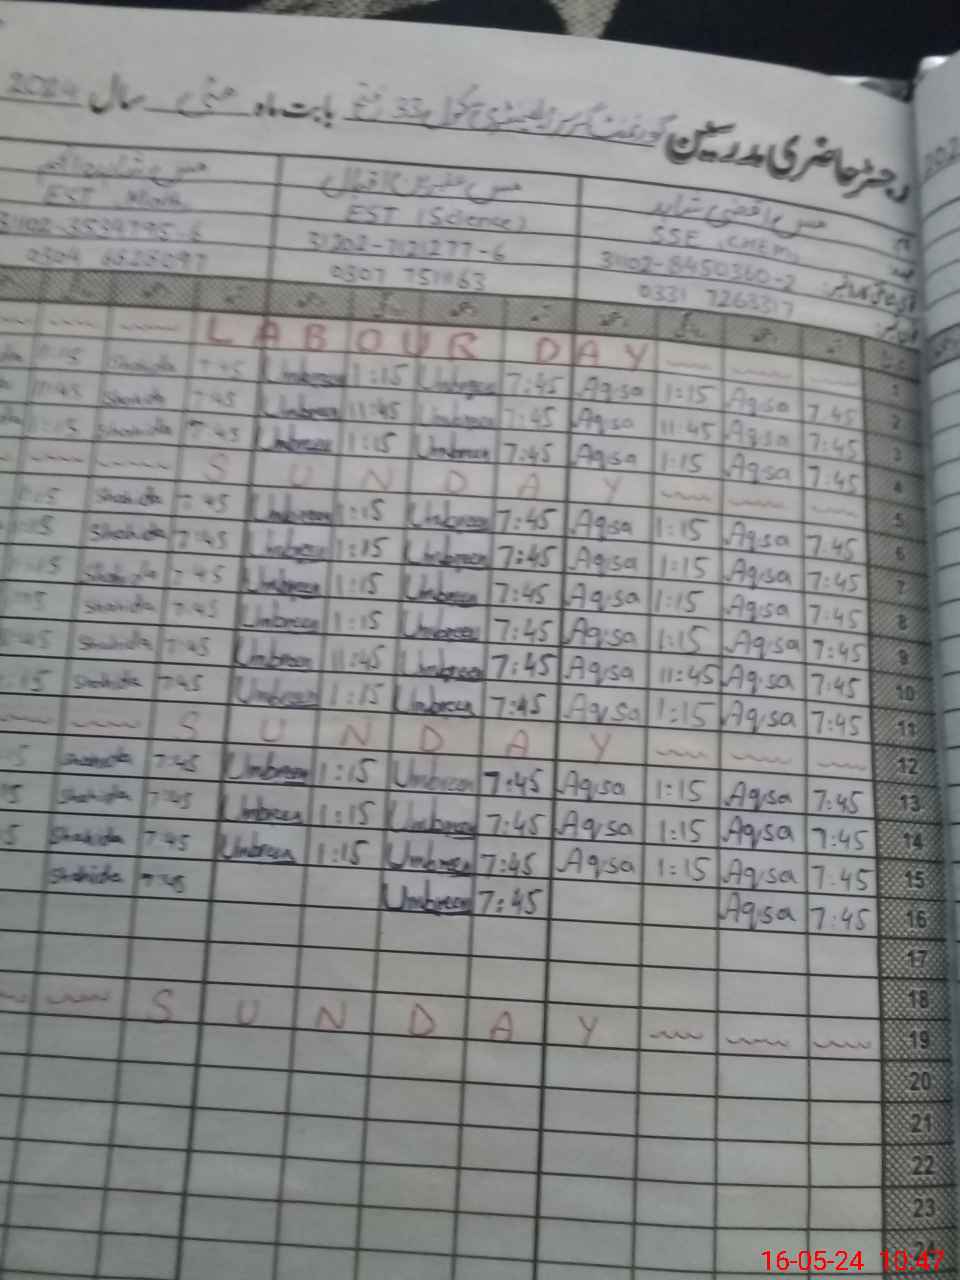 رجسٹر حاضری مدرسین گورنمنٹ گرلز ایلیمنٹری سکول بابت ماہ مئی سال 2024
مس اقصیٰ شاہد مس عنبرین اقبال
SSE (CHEM) EST (Science) EST
31102-8450360-2 31202-7121277-6
0331 7263317 0307 751163
LABOUR DAY 1
7:45 Aqsa 1:15 Aqsa 7:45 Umbreen 1:15 Umbreen 7:45 Shahida 2
7:45 Aqsa 11:45 Aqsa 7:45 Umbreen 11:45 Umbreen 7:45 Shahida 3
7:45 Aqsa 1:15 Aqsa 7:45 Umbreen 1:15 Umbreen 7:45 Shahida 4
SUNDAY 5
7:45 Aqsa 1:15 Aqsa 7:45 Umbreen 1:15 Umbreen 7:45 Shahida 6
7:45 Aqsa 1:15 Aqsa 7:45 Umbreen 1:15 Umbreen 7:45 Shahida 7
7:45 Aqsa 1:15 Aqsa 7:45 Umbreen 1:15 Umbreen 7:45 Shahida 8
7:45 Aqsa 1:15 Aqsa 7:45 Umbreen 1:15 Umbreen 7:45 Shahida 9
7:45 Aqsa 11:45 Aqsa 7:45 Umbreen 11:45 Umbreen 7:45 Shahida 10
7:45 Aqsa 1:15 Aqsa 7:45 Umbreen 1:15 Umbreen 7:45 Shahida 11
SUNDAY 12
7:45 Aqsa 1:15 Aqsa 7:45 Umbreen 1:15 Umbreen 7:45 Shahida 13
7:45 Aqsa 1:15 Aqsa 7:45 Umbreen 1:15 Umbreen 7:45 Shahida 14
7:45 Aqsa 1:15 Aqsa 7:45 Umbreen 1:15 Umbreen 7:45 Shahida 15
7:45 Aqsa 7:45 Umbreen 7:45 Shahida 16
17
18
SUNDAY 19
20
21
22
23
24
16-05-24 10:47